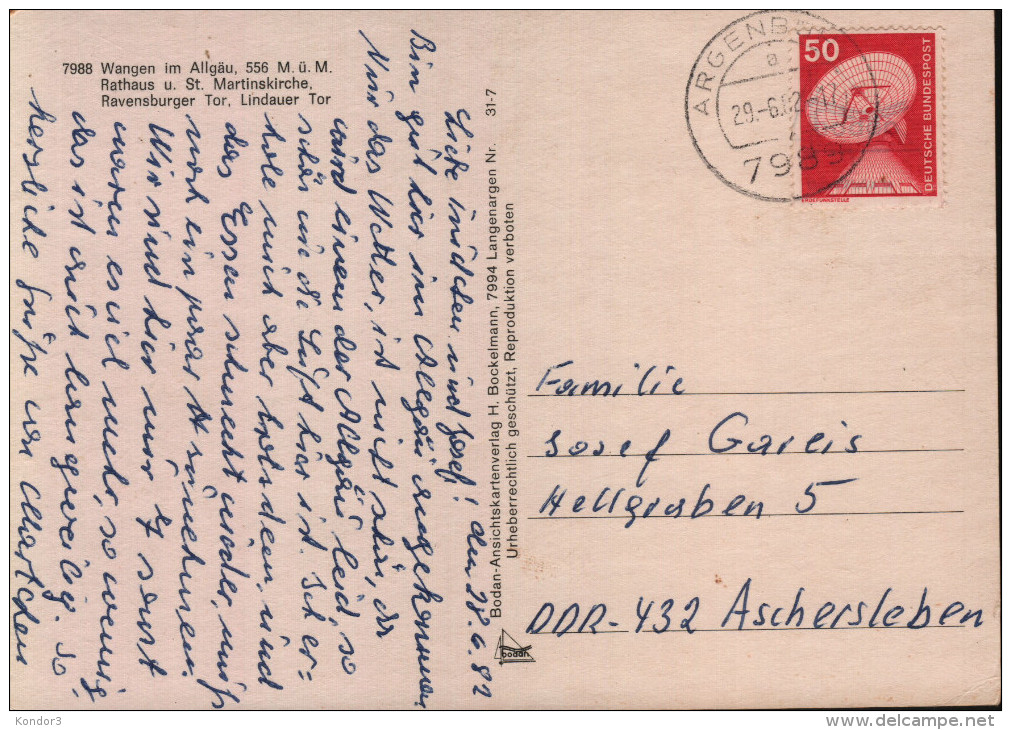 7988 Wangen im Allgäu, 556 M. ü. M.
Rathaus u. St. Martinskirche,
Ravensburger Tor, Lindauer Tor
Liebe und Josef! den 28.6.82
Bin gut hier im Allgäu angekommen
Nur das Wetter, ist nicht schön, da
wird einem das Allgäu leid, so
schön wie die Luft hier ist. Ich er=
hole mich aber trotzdem, und
das Essen schmeckt wieder, muß
noch ein paar H zunehmen.
Wir sind hier nur 7 sonst
waren es viel mehr, so wenig
das ist auch langweilig. So
herzliche Grüße von Martchen
Bodan-Ansichtskartenverlag H. Bockelmann, 7994 Langenargen Nr. 31-7
Urheberrechtlich geschützt, Reproduktion verboten
bodan
ARGENB
a
29.-6.82-17
7989
50
DEUTSCHE BUNDESPOST
ERDEFUNKSTELLE
Familie
Josef Gareis
Hellgraben 5
DDR-432 Aschersleben
Kondor3
www.delcampe.net